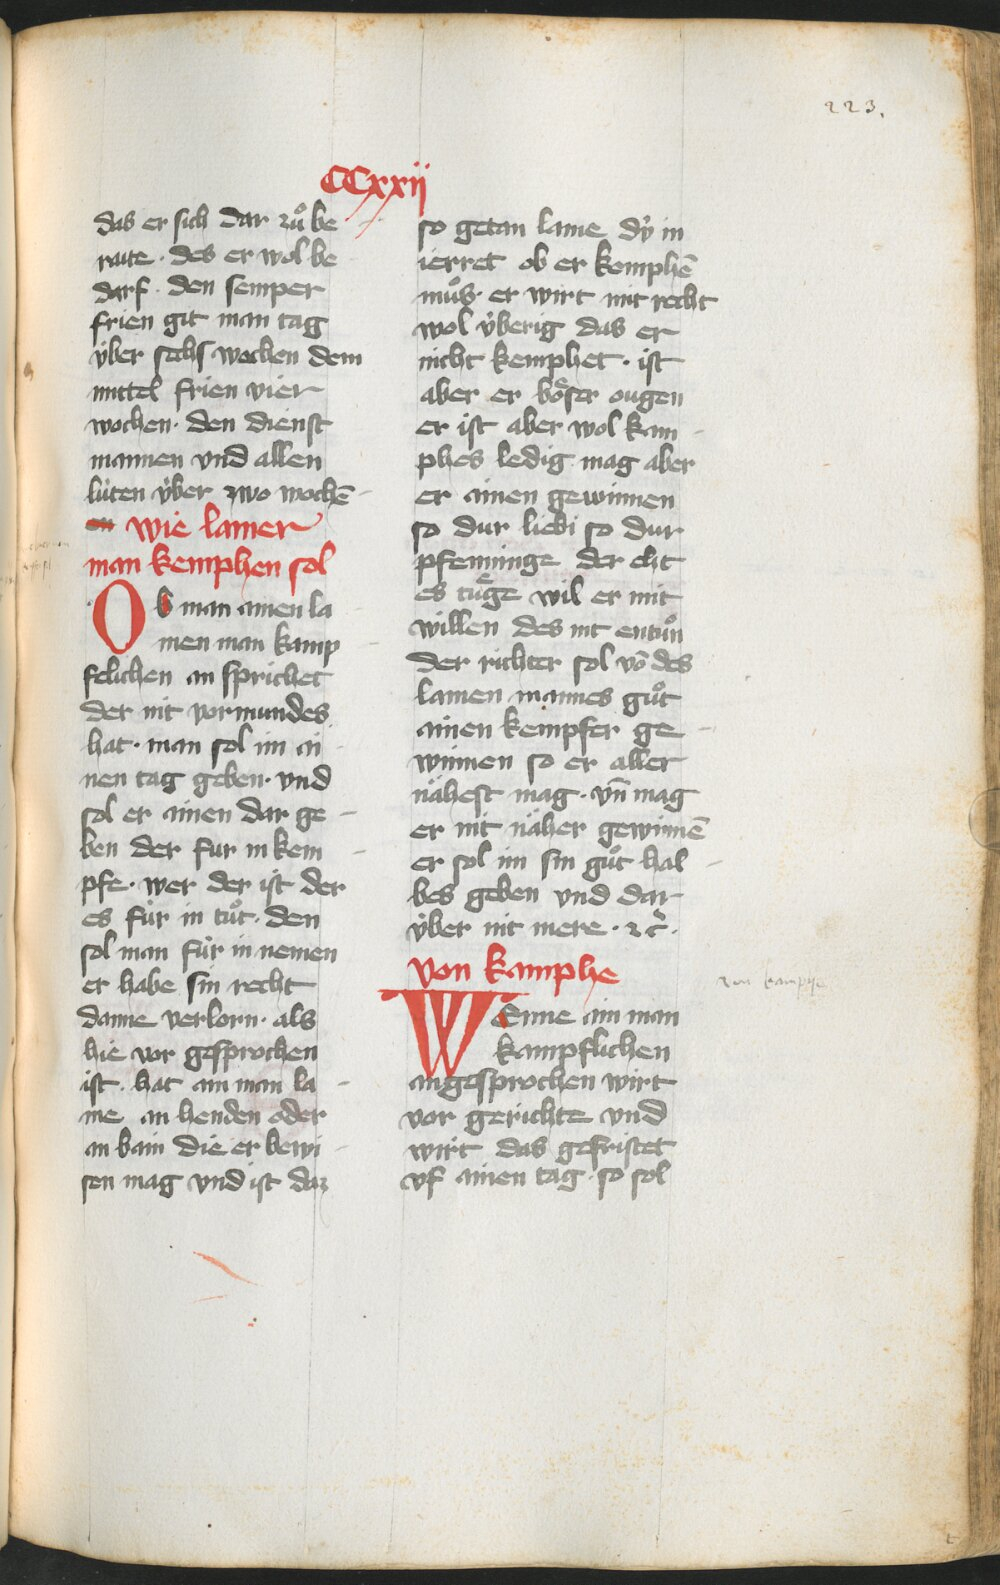 223.
CCxxij
das er sich dar zuͦ be
raite · des er wol be
darf · den semper
frien git man tag
v́ber sechs wochen dem
mittel frien vier
wochen · den dienst
mannen vnd allen
lúten v́ber zwo wochē
wie lamer
man kemphen sol
Ob man ainen la
men man kamp
felichen an sprichet
der nit vormundes
hat · man sol im ai
nen tag geben · vnd
sol er ainen dar ge
ben der fur in kem
pfe · wer der ist der
es fúr in tuͦt · den
sol man fúr in nemen
er habe sin recht
danne verlorn · als
hie vor gesprochen
ist · hat ain man la
me an henden oder
an bain die er bewi
sen mag vnd ist daz
so getan lame dy̍ in
ierret ob er kemphē
muͦs · er wirt mit recht
wol v́berig das er
nicht kemphet · ist
aber er boͤser ougen
er ist aber wol kam
phes ledig mag aber
er ainen gewinnen
so dur liebi so dur
pfenninge der eht
es tuͤge wil er mit
willen des nit entuͦn
der richter sol vō des
lamen mannes guͦt
ainen kempfer ge
winnen so er aller
nähest mag · vn̄ mag
er nit näher gewinnē
er sol im sin guͦt hal
bes geben vnd dar
v́ber nit mere · ꝛc̄ ·
von kamphe
WEnne ain man
kampflichen
angesprochen wirt
vor gerichte vnd
wirt das gefristet
vf ainen tag · so sol
von kamphe